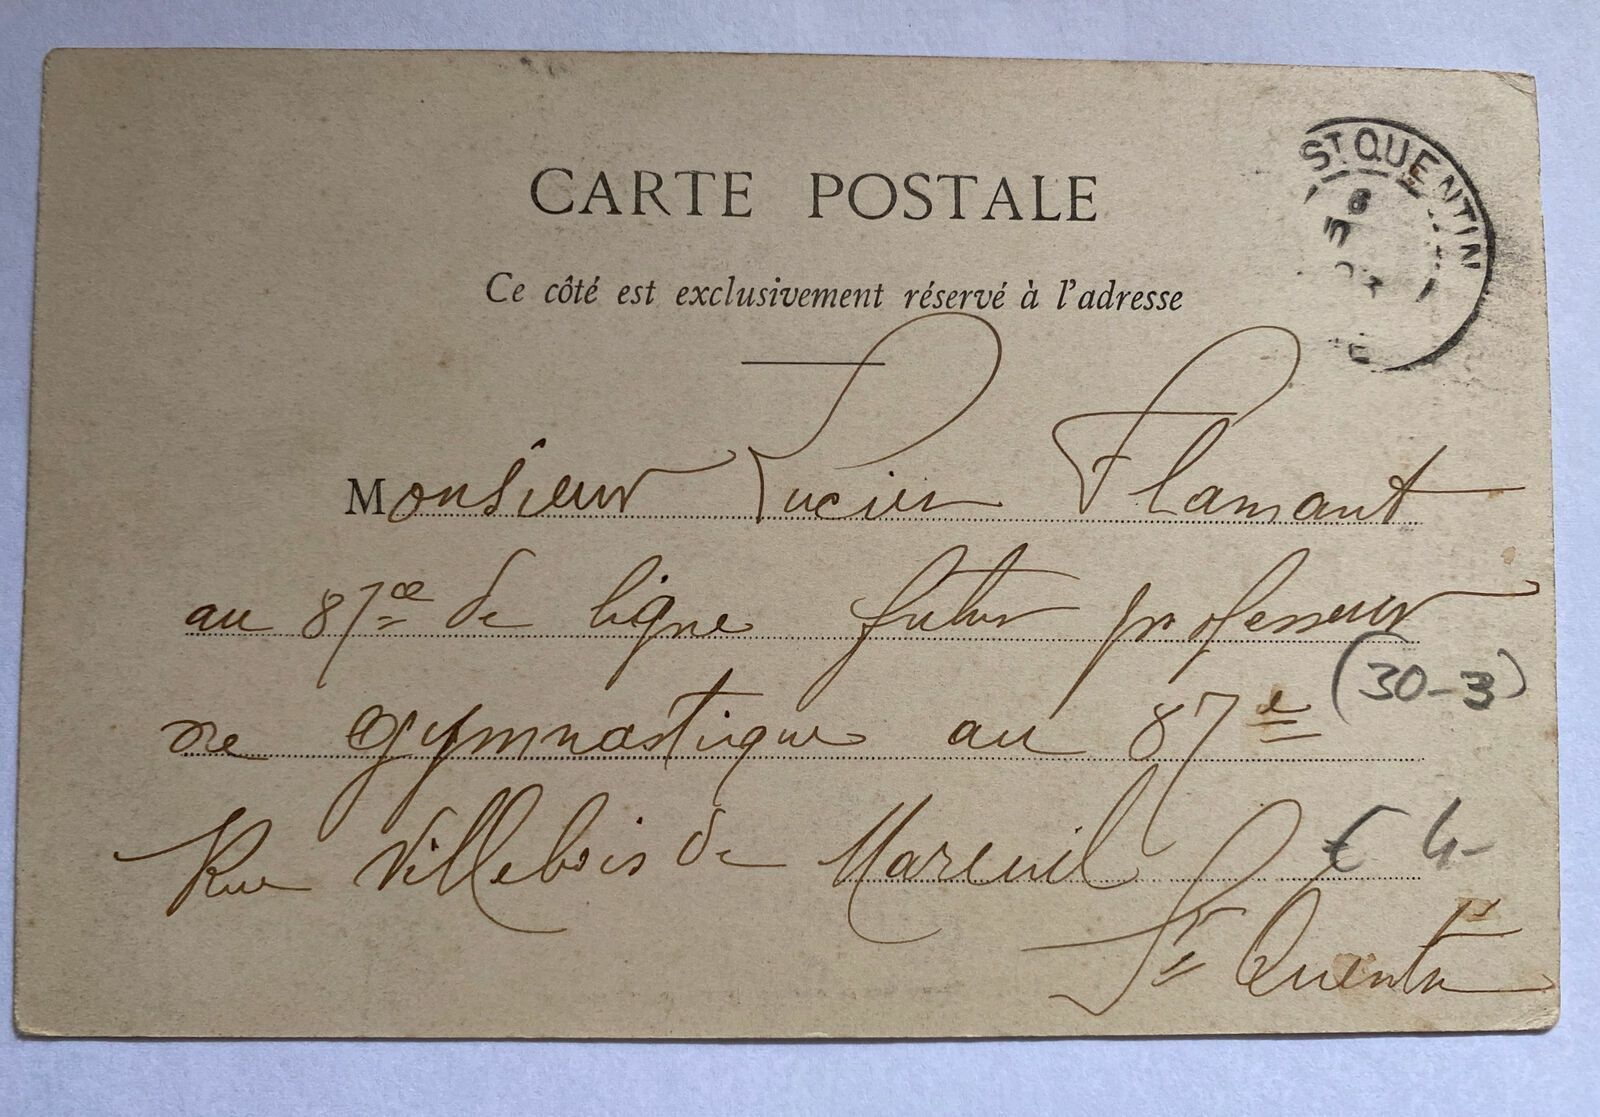 CARTE POSTALE
ST QUENTIN
Ce côté est exclusivement réservé à l'adresse
Monsieur Lucien Flamant
au 87me de ligne futur professeur
(30-3)
de gymnastique au 87e
Rue Villebois de Mareuil
€ 4-
St Quentin